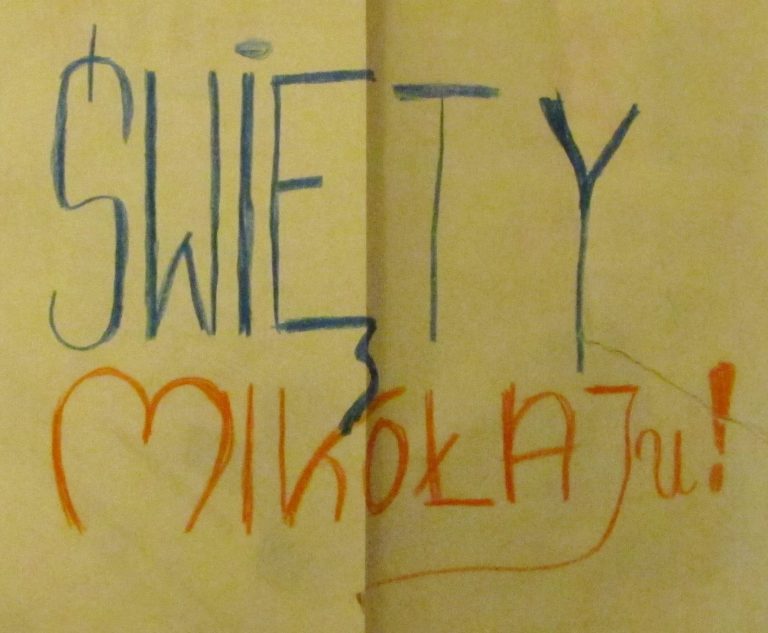 ŚWiĘTY
MIKOŁAJu!